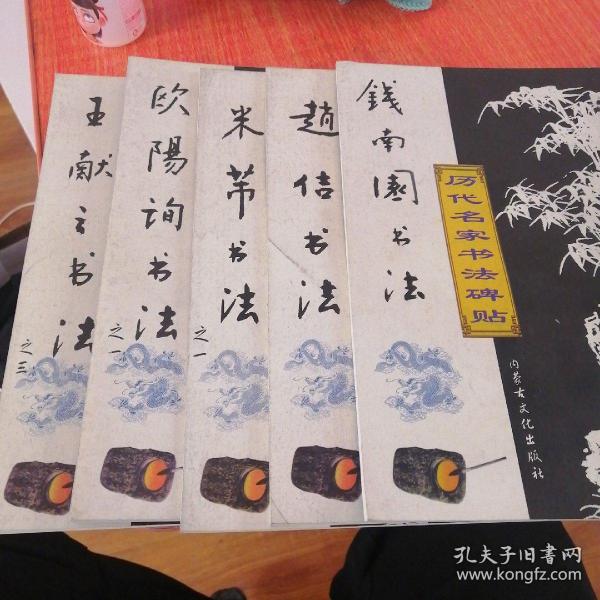 王献之书法
之三
欧陽詢书法
之一
米芾书法
之一
趙佶书法
錢南園书法
历代名家书法碑贴
内蒙古文化出版社
孔夫子旧书网
www.kongfz.com